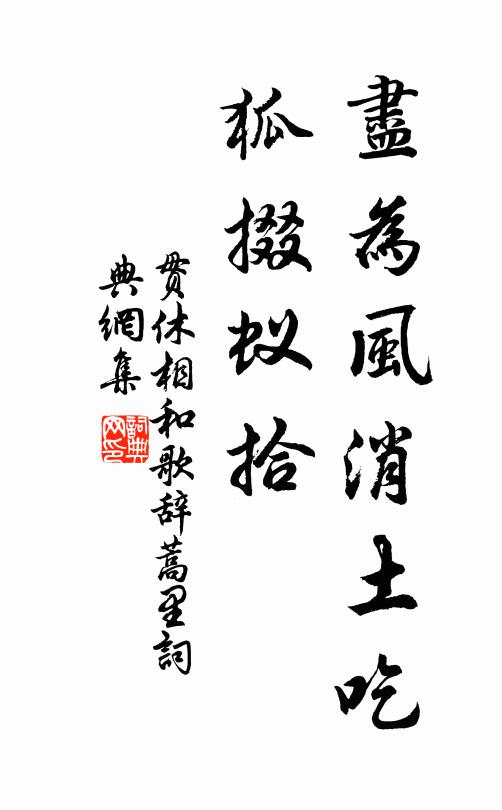 盡為風消土吃
狐掇蚁拾
贯休相和歌辞蒿里詞
典網集
詞典网印